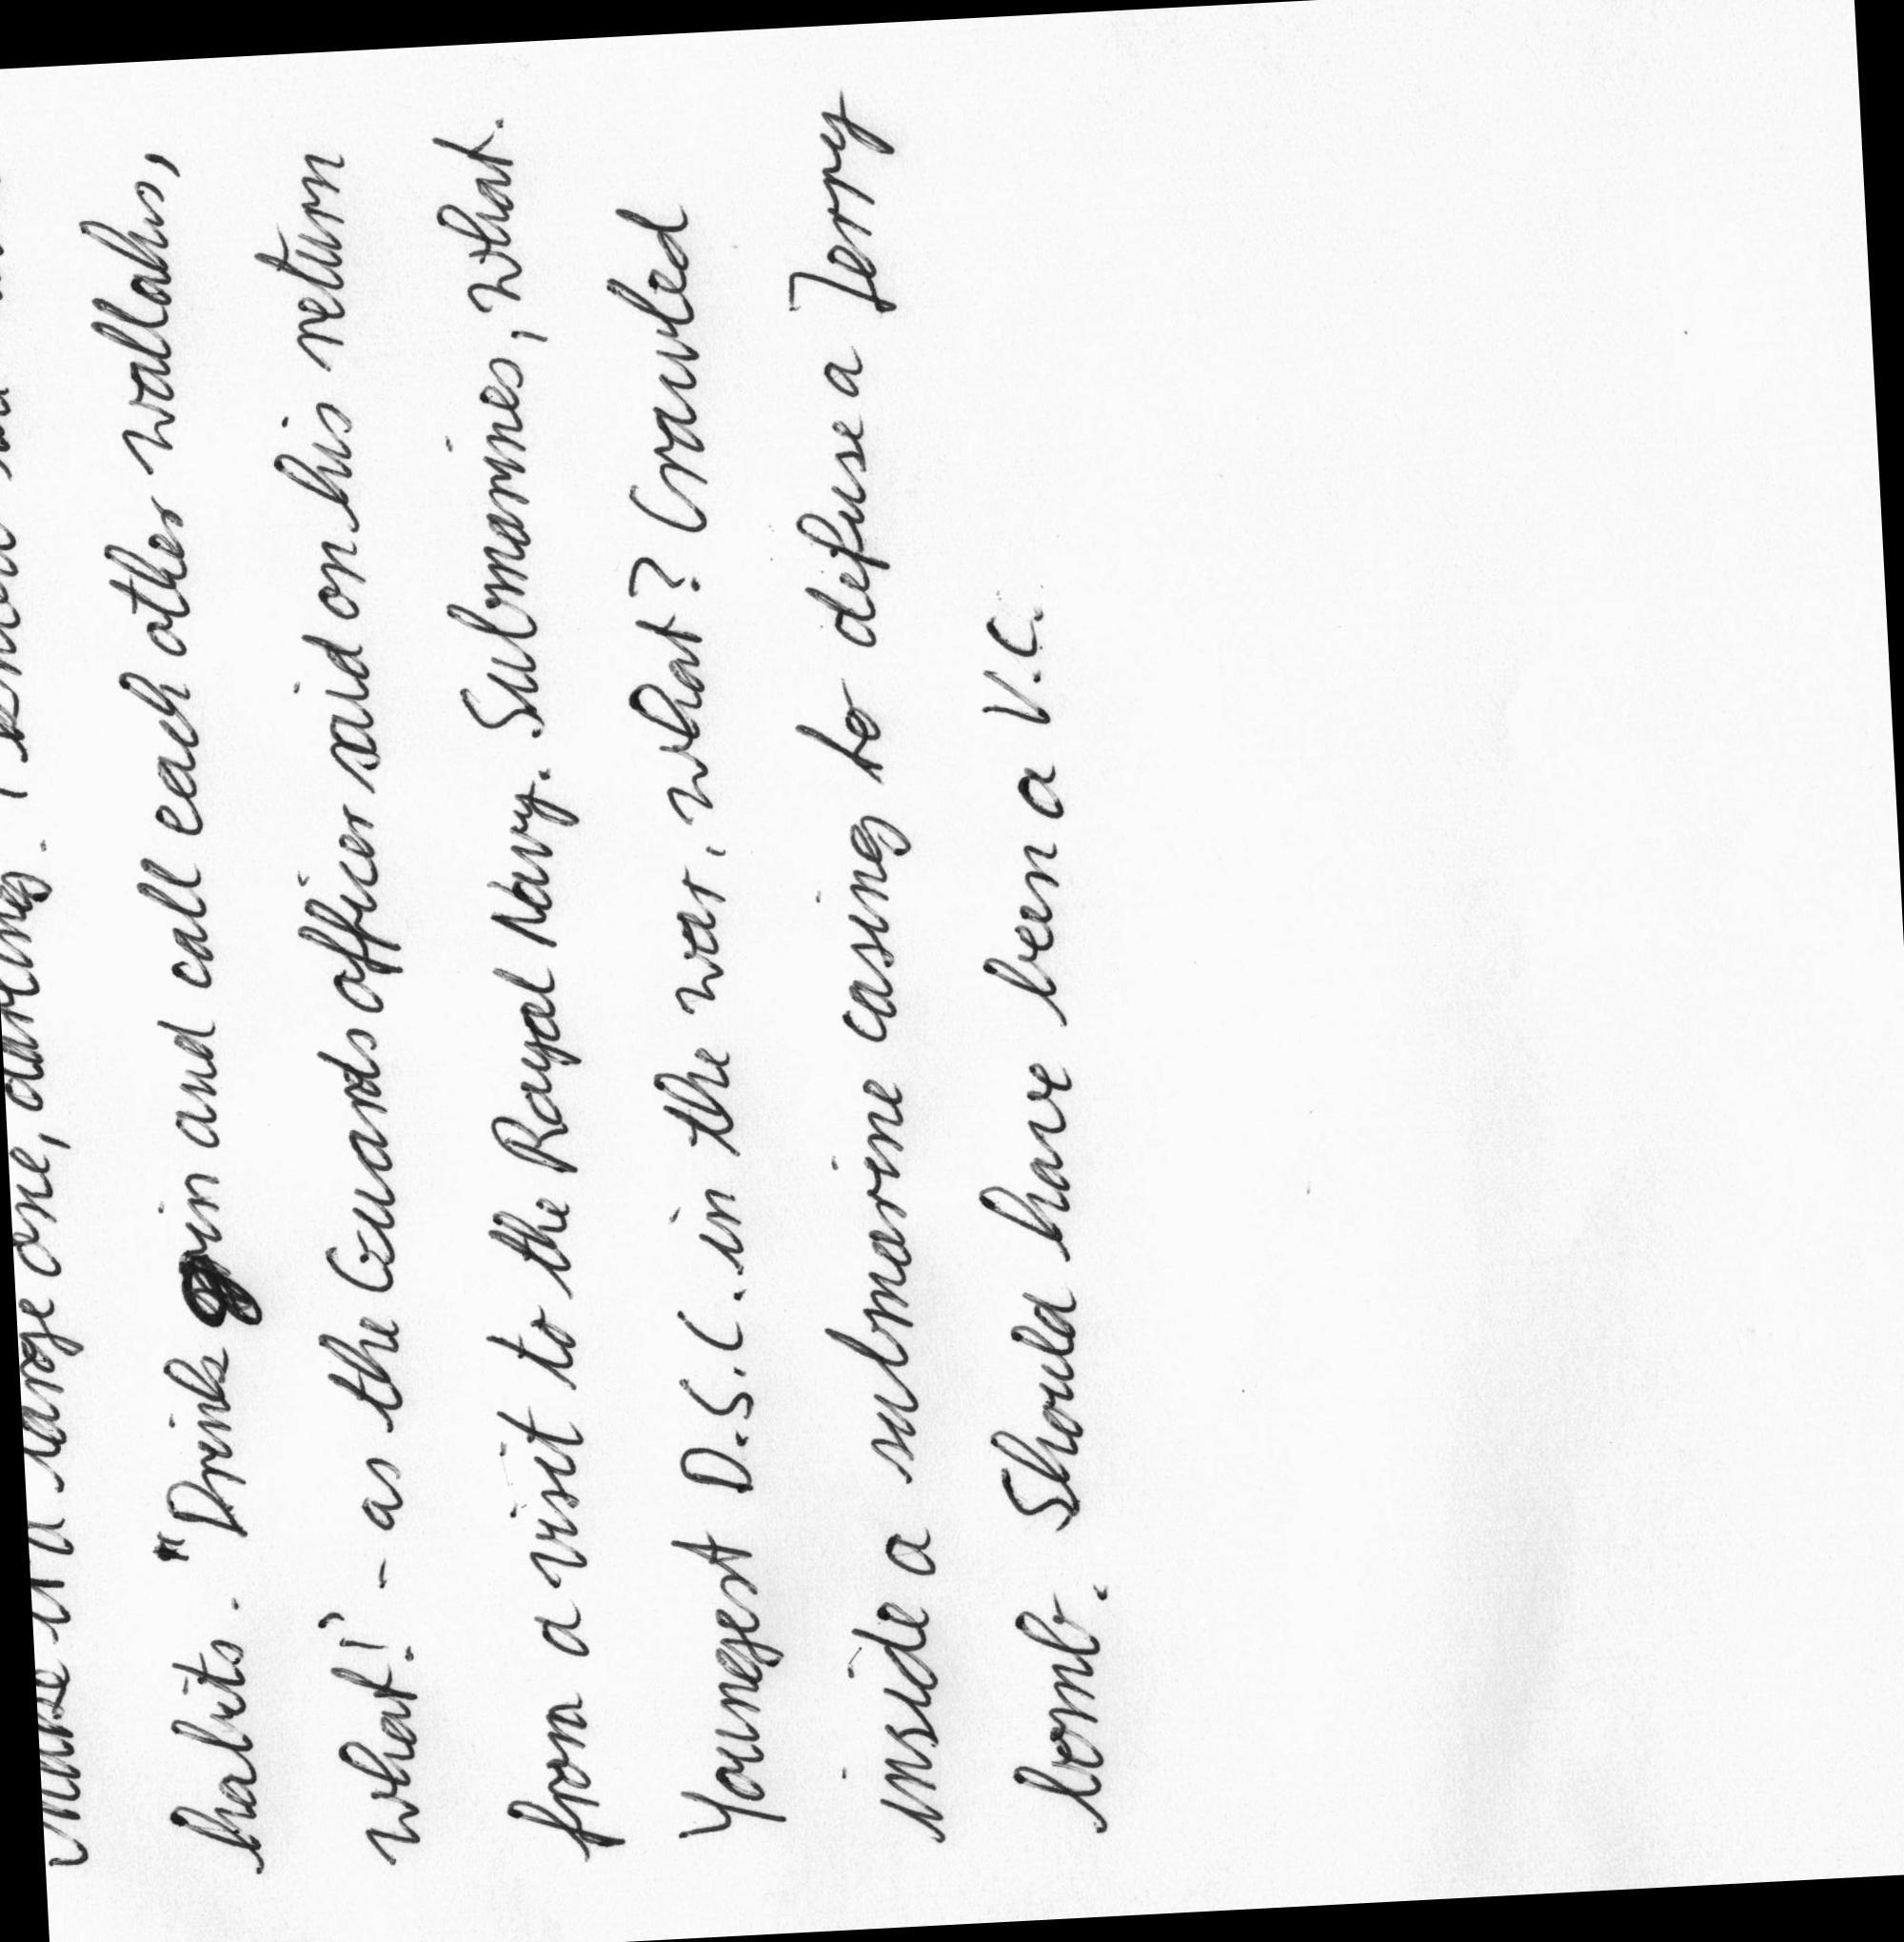 Make it a large one, darling. I know
habits. "Drinks gin and call each other wallahs,
what!' - as the Guards officer said on his return
from a visit to the Royal Navy. Submarines, what.
Youngest D.S.C. in the war, what? Crawled
inside a submarine casing to defuse a Jerry
bomb. Should have been a V.C.